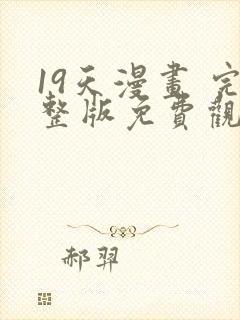 19天漫畫 完
整版免費觀
郝羿